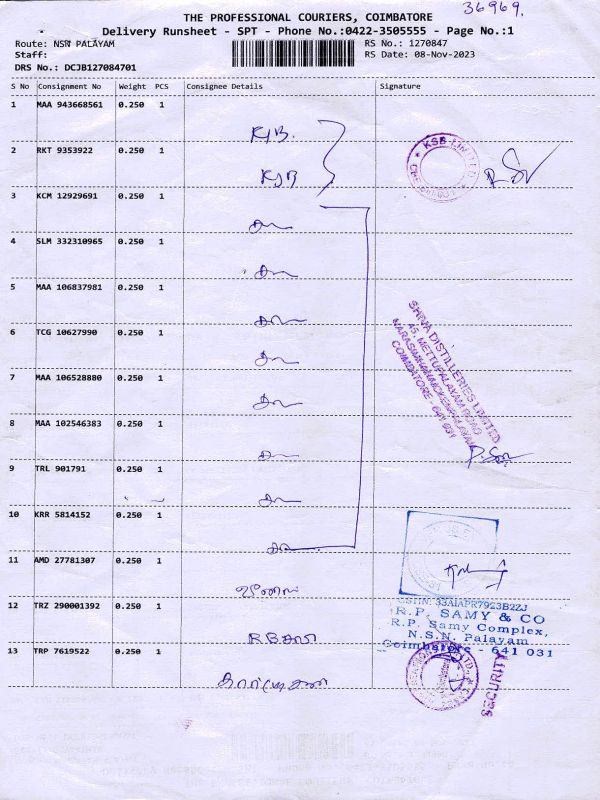 36969.
THE PROFESSIONAL COURIERS, COIMBATORE
Delivery Runsheet - SPT - Phone No.:0422-3505555 - Page No.:1
Route: NSN PALAYAM
RS No.: 1270847
Staff:
RS Date: 08-Nov-2023
DRS No.: DCJB127084701
S No Consignment No Weight PCS Consignee Details Signature
1 MAA 943668561 0.250 1
2 RKT 9353922 0.250 1
KSB LIMITED
3 KCM 12929691 0.250 1
4 SLM 332310965 0.250 1
5 MAA 106837981 0.250 1
6 TCG 10627990 0.250 1
7 MAA 106528880 0.250 1
SHIVA DISTILLERIES LIMITED
45, METTUPALAYAM ROAD
COIMBATORE - 641 031
8 MAA 102546383 0.250 1
9 TRL 901791 0.250 1
10 KRR 5814152 0.250 1
11 AMD 27781307 0.250 1
12 TRZ 290001392 0.250 1
GSTIN: 33AIAPR7923B2ZJ
R.P. SAMY & CO
R.P. Samy Complex,
N.S.N. Palayam
Coimbatore - 641 031
13 TRP 7619522 0.250 1
SECURITY